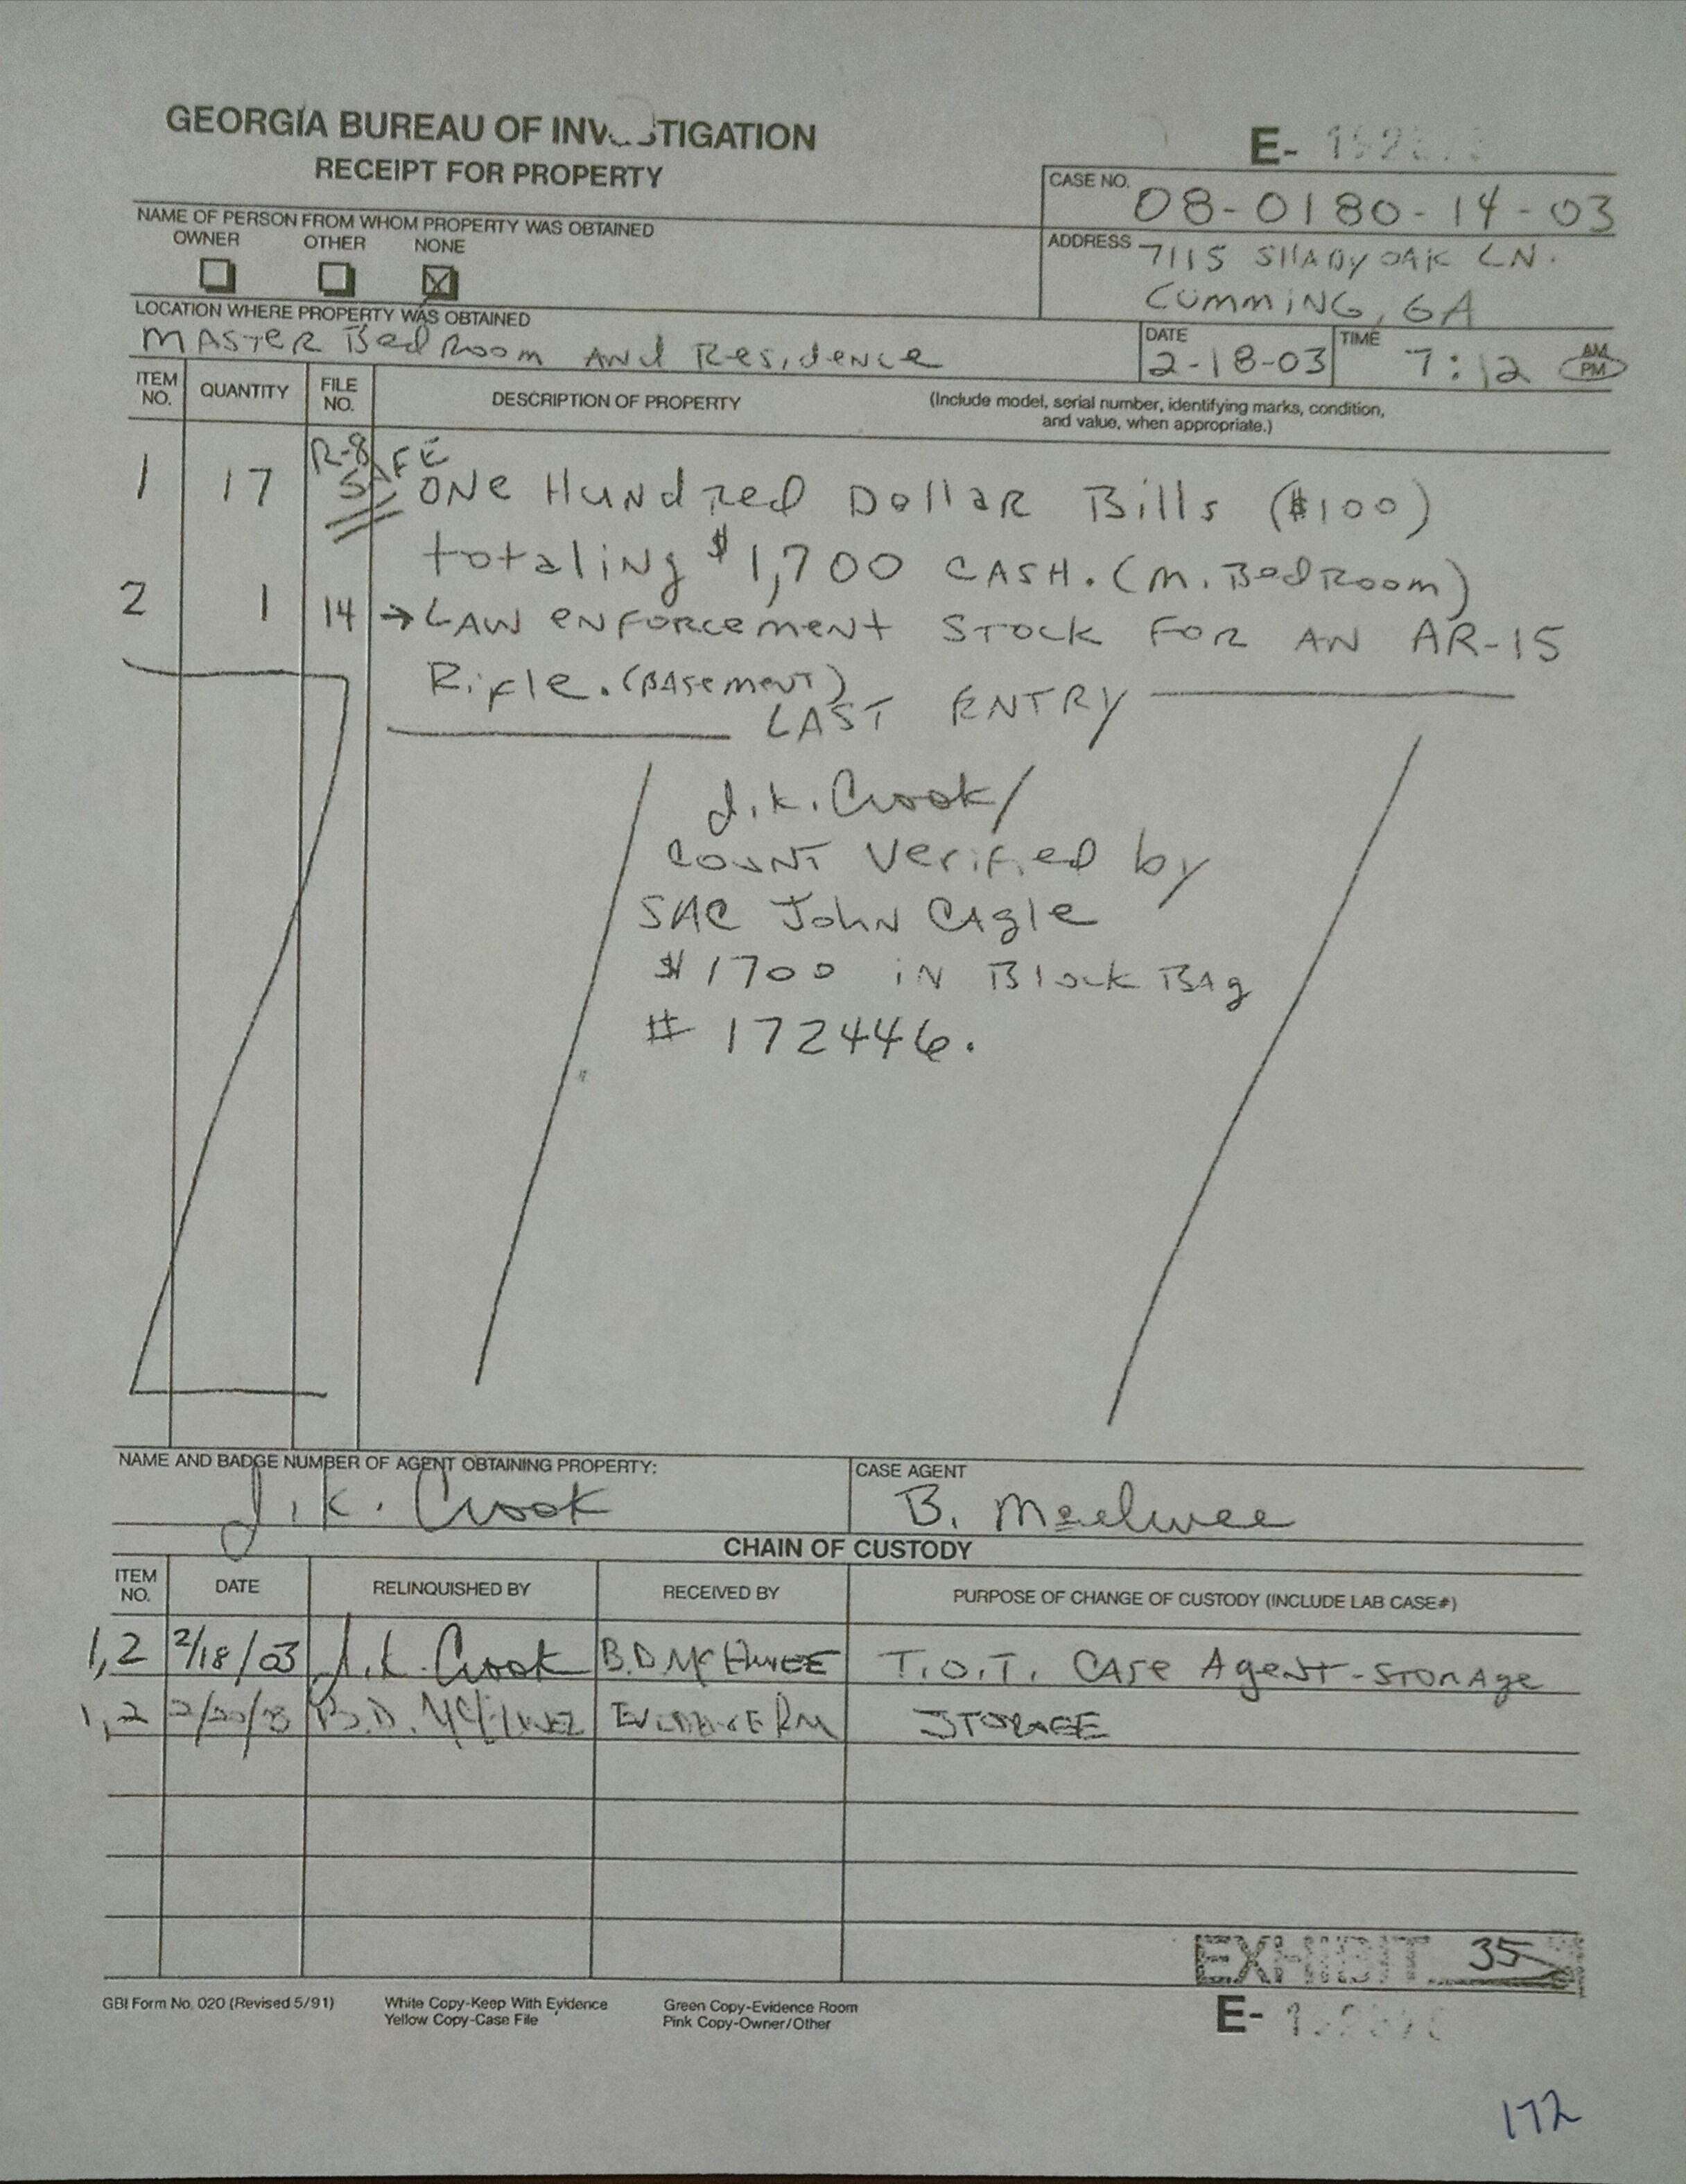 GEORGIA BUREAU OF INV TIGATION
RECEIPT FOR PROPERTY
E-
CASE NO. 08-0180-14-03
NAME OF PERSON FROM WHOM PROPERTY WAS OBTAINED
OWNER OTHER NONE
ADDRESS 7115 SHADY OAK LN.
CUMMING, GA
LOCATION WHERE PROPERTY WAS OBTAINED
MASTER BedRoom And Residence
DATE 2-18-03 TIME 7:12 AM PM
ITEM NO. QUANTITY FILE NO. DESCRIPTION OF PROPERTY (Include model, serial number, identifying marks, condition, and value, when appropriate.)
R-8 SAFE
1 17 ONE HUNdRed Dollar Bills ($100)
totaling $1,700 CASH. (M. BedRoom)
2 1 14 → LAW enforcement STOCK FOR AN AR-15
Rifle. (BAsement)
LAST ENTRY
J.K. Crook/
COUNT Verified by
SAC John CAgle
$1700 iN Block BAg
# 172446.
NAME AND BADGE NUMBER OF AGENT OBTAINING PROPERTY: CASE AGENT
J.K. Crook B. McElwee
CHAIN OF CUSTODY
ITEM NO. DATE RELINQUISHED BY RECEIVED BY PURPOSE OF CHANGE OF CUSTODY (INCLUDE LAB CASE#)
1,2 2/18/03 J.K. Crook B.D. McElwee T.O.T. CASe Agent-Storage
1,2 2/20/03 B.D. McElwee EVIDENCE RM STORAGE
EXHIBIT 35
GBI Form No. 020 (Revised 5/91) White Copy-Keep With Evidence Green Copy-Evidence Room
Yellow Copy-Case File Pink Copy-Owner/Other
E-
172